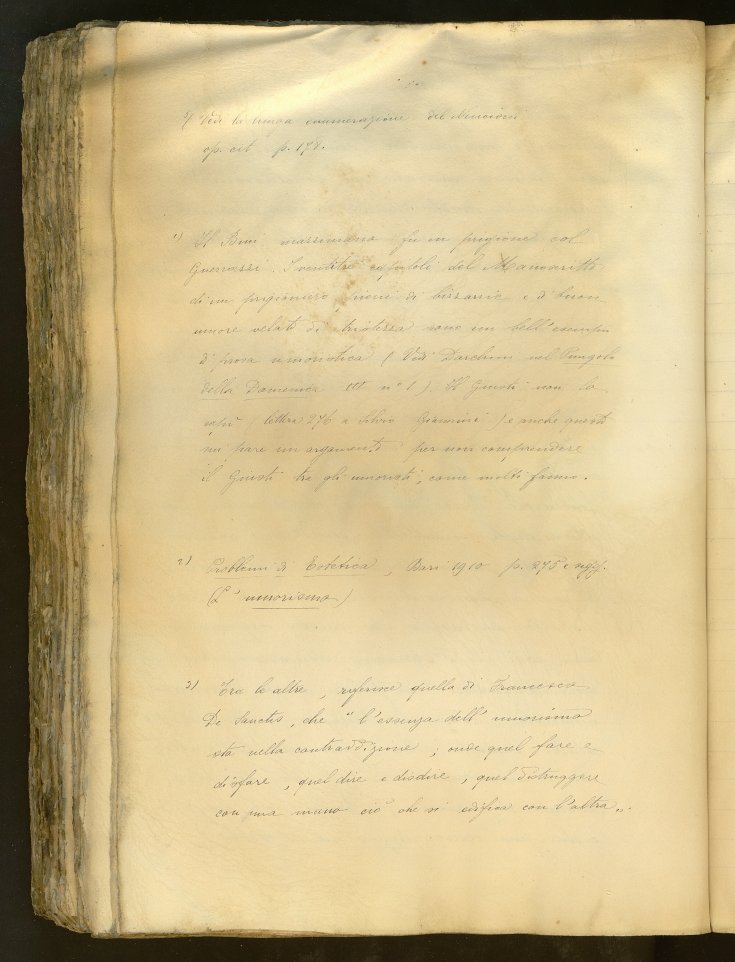 5) Vedi la lunga enumerazione del Nencioni
op. cit. p. 178.
1) Il Bini, fu in prigione col
Guerrazzi. I ventitre capitoli del Manoscritto
di un prigioniero, pieni di bizzarrie e di buon
umore velato di tristezza sono un bell'esempio
di prosa umoristica (Vedi nel Pungolo
della Domenica III n° 1). Il Giusti non lo
capì (lettera 276 a Silvio Giannini) e anche questo
mi pare un argomento per non comprendere
il Giusti tra gli umoristi, come molti fanno.
2) Problemi di Estetica, Bari 1910 p. 275 e segg.
(L'umorismo)
3) Tra le altre, riferisce quella di Francesco
De Sanctis, che "l'essenza dell'umorismo
sta nella contraddizione; onde quel fare e
disfare, quel dire e disdire, quel distruggere
con una mano ciò che si edifica con l'altra".